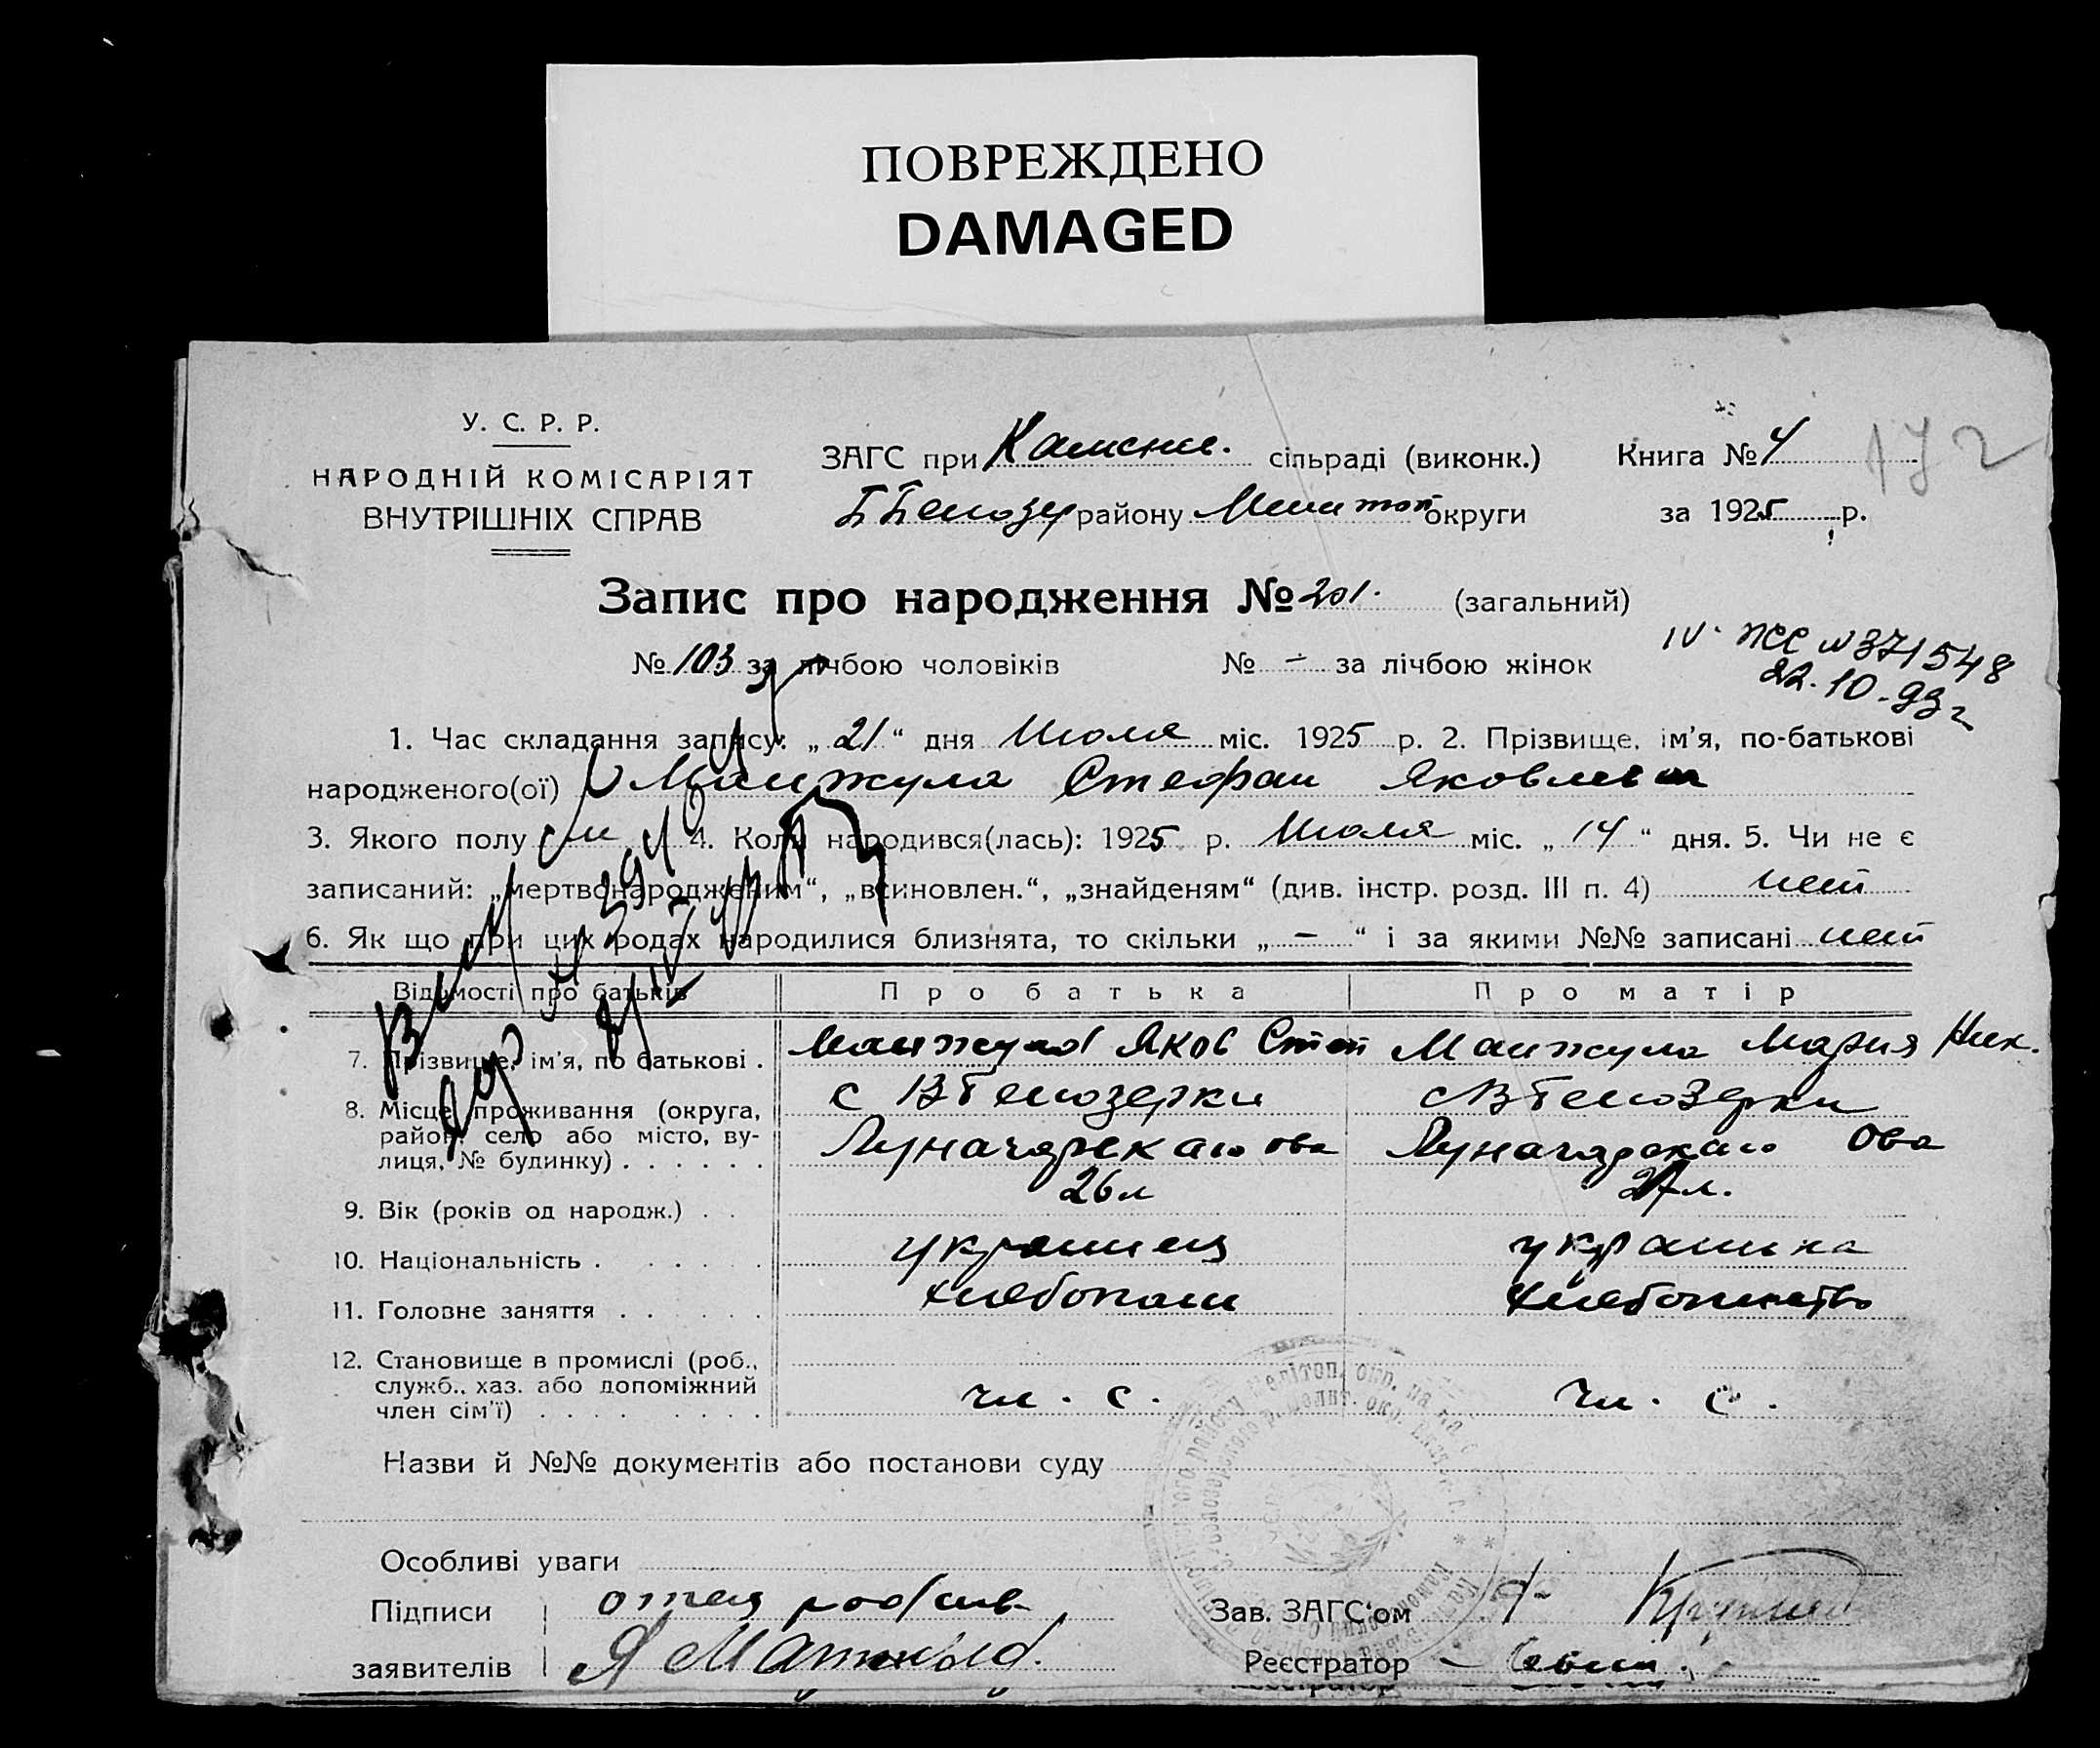 ПОВРЕЖДЕНО
DAMAGED
У. С. Р. Р.
НАРОДНІЙ КОМІСАРІЯТ
ВНУТРІШНІХ СПРАВ
ЗАГС при Каменс. сільраді (виконк.)
району округи
Книга № 4
за 1925 р.
172
Запис про народження № 201. (загальний)
№ 103 за лічбою чоловіків № – за лічбою жінок
IV-ЖС №371548
22.10.93г
1. Час складання запису: „ 21 “ дня Июля міс. 1925 р. 2. Прізвище, ім’я, по-батькові
народженого(ої) Манжула Стефан Яковлев
3. Якого полу м 4. Коли народився(лась): 1925 р. Июля міс. „ 14 “ дня. 5. Чи не є
записаний: „мертвонародженим“, „всиновлен.“, „знайденям“ (див. інстр. розд. III п. 4) нет
6. Як що при цих родах народилися близнята, то скільки „ – “ і за якими №№ записані нет
Відомості про батьків Про батька Про матір
7. Прізвище, ім’я, по батькові . Манжула Яков Степ Манжула Мария Ник.
8. Місце проживання (округа, район, село або місто, вулиця, № будинку) . . . . . . с ВБелозерки с ВБелозерки
Луначарскаго ова Луначарскаго Ова
9. Вік (років од народж.) . . 26л 27л.
10. Національність . . . . . . украинец украинка
11. Головне заняття . . . . . хлебопаш хлебопашство
12. Становище в промислі (роб., служб., хаз. або допоміжний член сім’ї) . . . . . . . . чл. с. чл. с.
Назви й №№ документів або постанови суду
Особливі уваги
Підписи отец
заявителів Я Манжула.
Зав. ЗАГС‘ом
Реєстратор